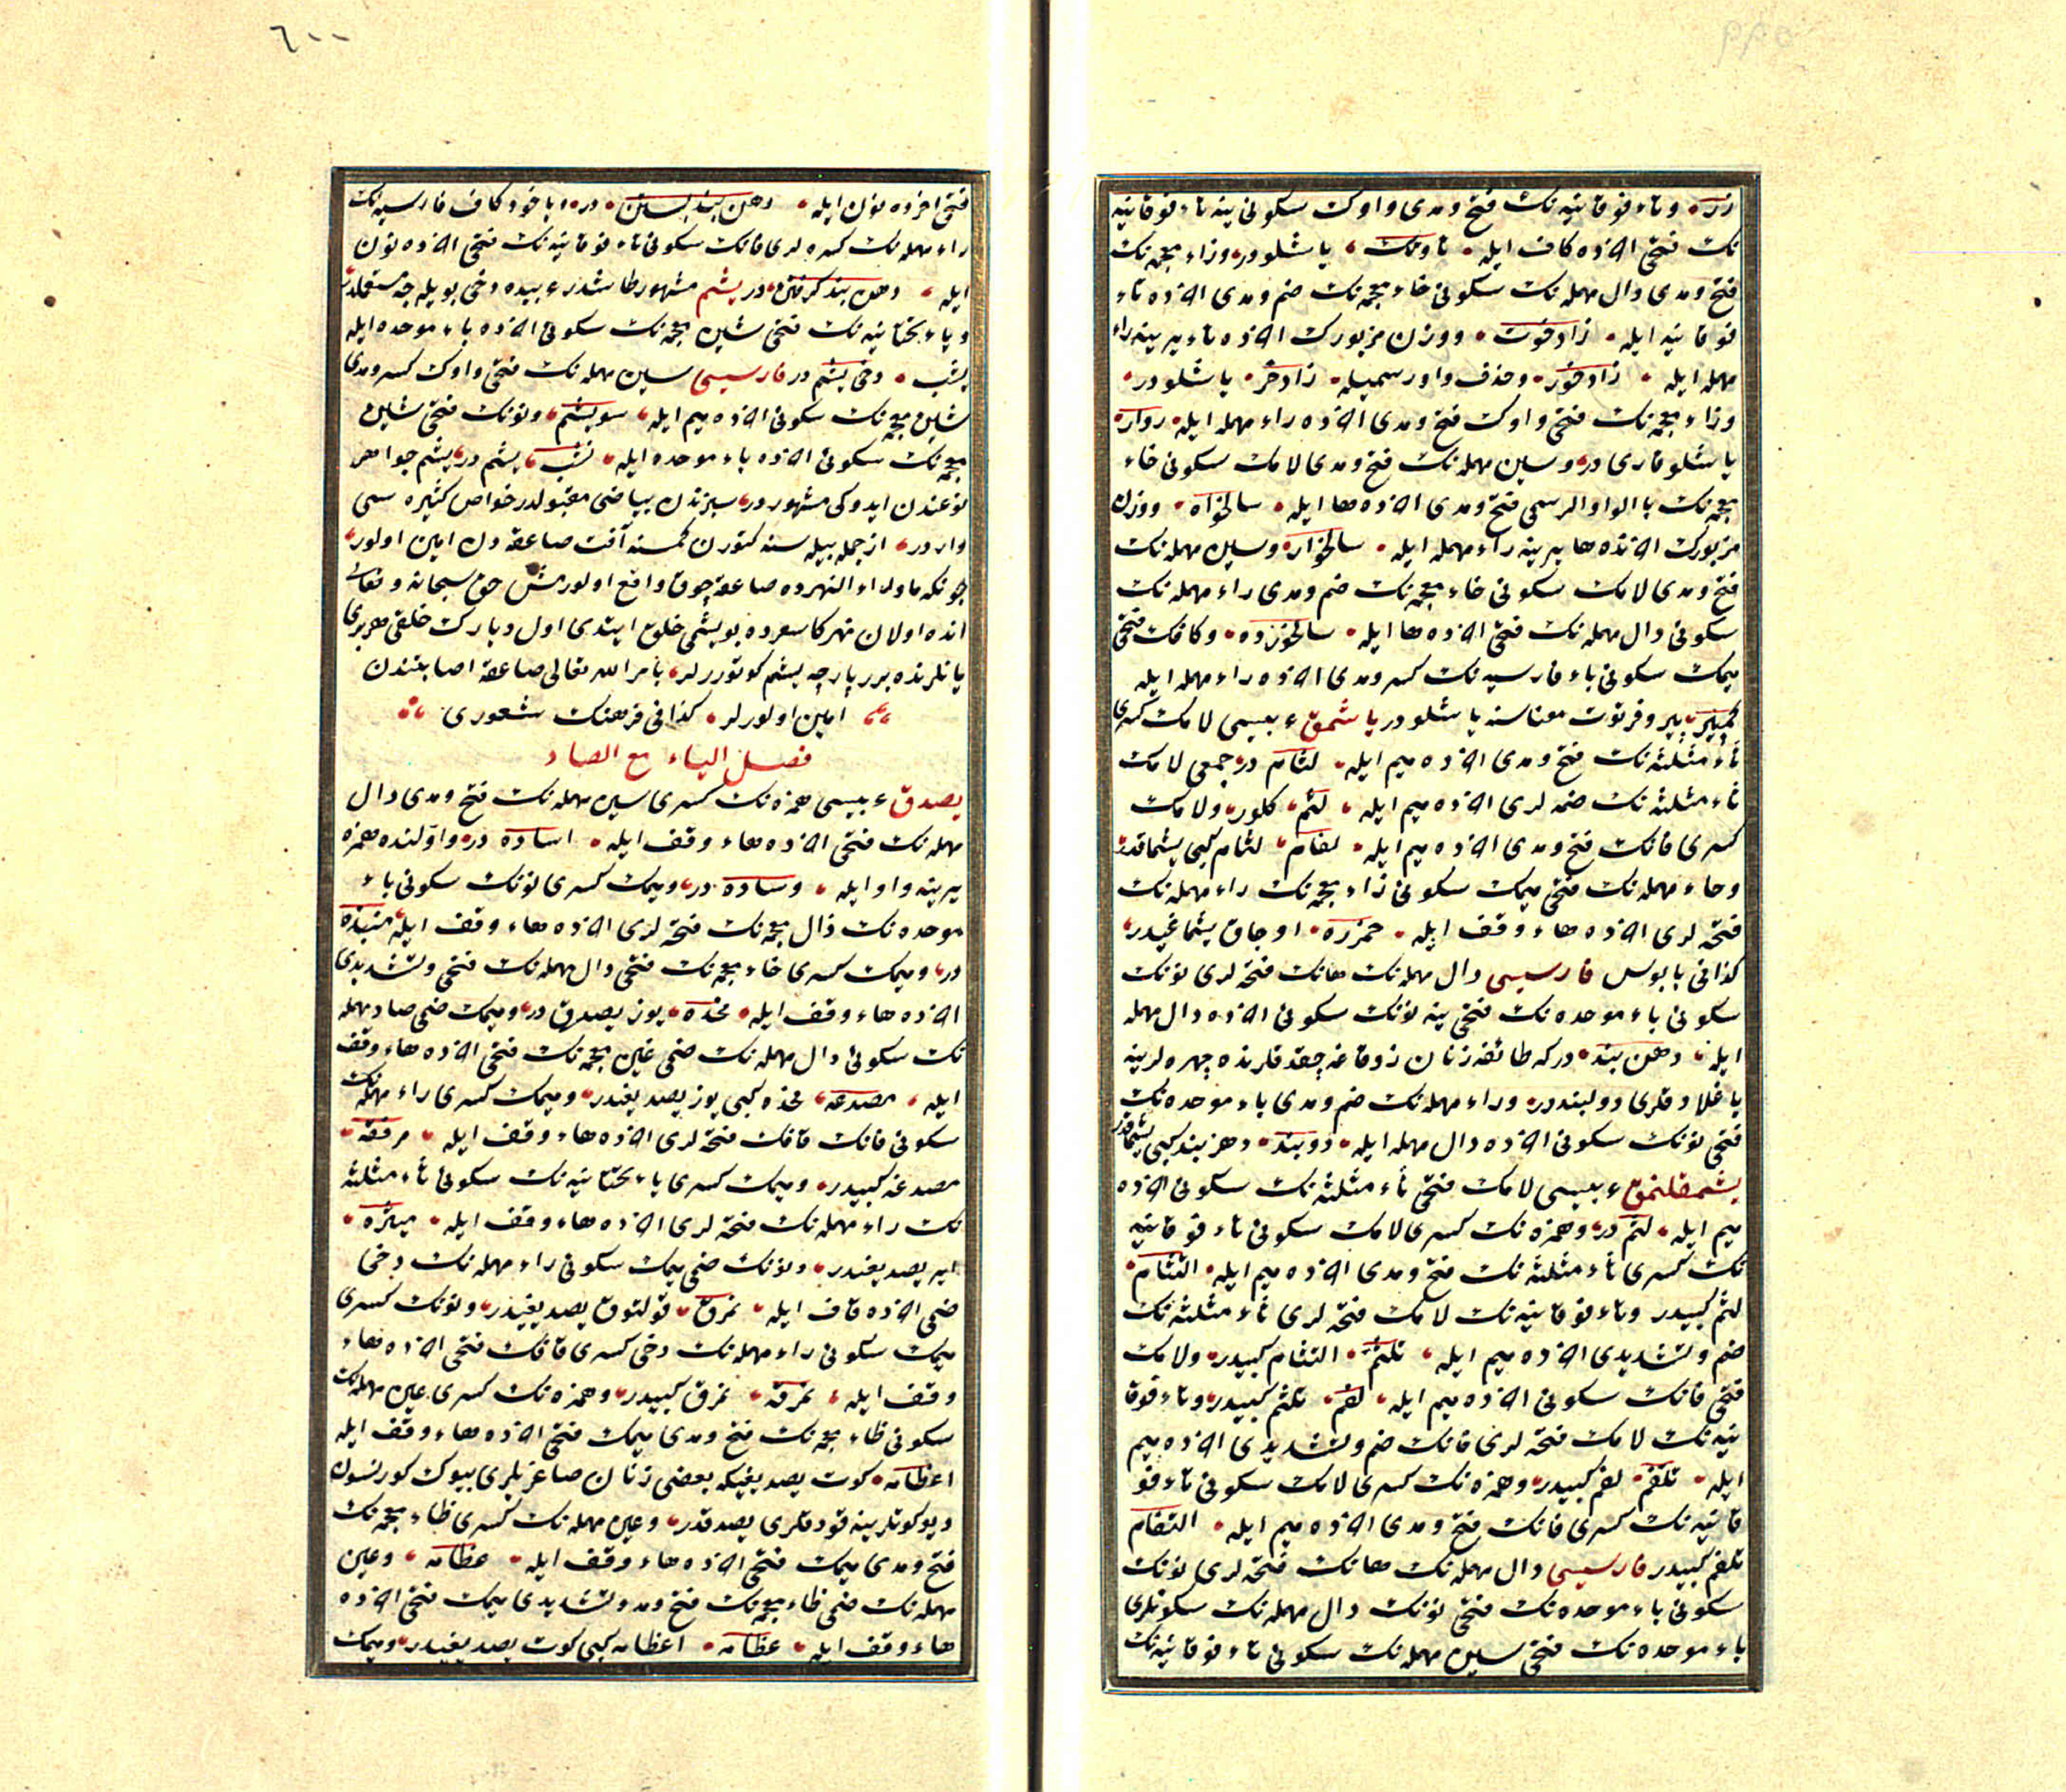 زر، وتاء فوقانیه نك فتح ومدی واوك سکونی ینه تاء فوقانیه
نك فتحی آخرده کاف ایله، تاوتك، یاشلودر، وزاء معجمه نك
فتح ومدی دال مهمله نك سکونی خاء معجمه نك ضم ومدی آخرده تاء
فوقانیه ایله، زادخوت، ووزن مزبورك آخرده تاء یرینه راء
مهمله ایله، زادخور، وحذف واو رسمیله، زادخر، یاشلودر،
وزاء معجمه نك فتحی واوك فتح ومدی آخرده راء مهمله ایله، زوار،
یاشلو قاری در، وسین مهمله نك فتح ومدی لامك سکونی خاء
معجمه نك باالواو الرسمی فتح ومدی آخرده ها ایله، سالخواه، ووزن
مزبورك آخرنده ها یرینه راء مهمله ایله، سالخوار، وسین مهمله نك
فتح ومدی لامك سکونی خاء معجمه نك ضم ومدی راء مهمله نك
سکونی دال مهمله نك فتحی آخرده ها ایله، سالخورده، وکافك فتحی
میمك سکونی باء فارسیه نك کسر ومدی آخرده راء مهمله ایله
کمپیر، پیر وفرتوت معناسنه یاشلودر یاشمق عربیسی لامك کسری
ثاء مثلثه نك فتح ومدی آخرده میم ایله، لثام در، جمعی لامك
ثاء مثلثه نك ضمه لری آخرده میم ایله، لثم، کلور، ولامك
کسری فانك فتح ومدی آخرده میم ایله، لفام، لثام کبی یشماقدر،
وحاء مهمله نك فتحی میمك سکونی زاء معجمه نك راء مهمله نك
فتحه لری آخرده هاء وقف ایله، حمزره، اوجاق یشماغیدر،
کذا فی بابوس فارسیسی دال مهمله نك هانك فتحه لری نونك
سکونی باء موحده نك فتحی ینه نونك سکونی آخرده دال مهمله
ایله، دهن بند، درکه طائفه زنان زوقاغه چقدقلرنده چهره لرینه
باغلادقلری دولبنددر، وراء مهمله نك ضم ومدی باء موحده نك
فتحی نونك سکونی آخرده دال مهمله ایله، روبند، دهن بند کبی یشماقدر
یشمقلنمق عربیسی لامك فتحی ثاء مثلثه نك سکونی آخرده
میم ایله، لثم در، وهمزه نك کسری لامك سکونی تاء فوقانیه
نك کسری ثاء مثلثه نك فتح ومدی آخرده میم ایله، التثام،
لثم کبیدر وتاء فوقانیه نك لامك فتحه لری ثاء مثلثه نك
ضم وتشدیدی آخرده میم ایله، تلثم، التثام کبیدر، ولامك
فتحی فانك سکونی آخرده میم ایله، لفم، تلثم کبیدر، وتاء فوقا
نیه نك لامك فتحه لری فانك ضم وتشدیدی آخرده میم
ایله، تلفم، لفم کبیدر، وهمزه نك کسری لامك سکونی تاء فو
قانیه نك کسری فانك فتح ومدی آخرده میم ایله، التفام
تلفم کبیدر فارسیسی دال مهمله نك هانك فتحه لری نونك
سکونی باء موحده نك فتحی نونك دال مهمله نك سکونلری
باء موحده نك فتحی سین مهمله نك سکونی تاء فوقانیه نك
فتحی آخرده نون ایله، دهن بند بستن، در، یاخود کاف فارسیه نك
راء مهمله نك کسره لری فانك سکونی تاء فوقانیه نك فتحی آخرده نون
ایله، دهن بند کرفتن، در یشم مشهور طاشدر عربیده دخی بویله جه مستعملدر،
ویاء تحتانیه نك فتحی شین معجمه نك سکونی آخرده باء موحده ایله
یشب، دخی یشم در فارسیسی سین مهمله نك فتحی واوك کسر ومدی
شین معجمه نك سکونی آخرده میم ایله، سویشم، ونونك فتحی شین
معجمه نك سکونی آخرده باء موحده ایله، نشب، یشم در، یشم جواهر
نوعندن ایدوکی مشهوردر، سبزندن بیاضی مقبولدر خواص کثیره سی
واردر، از جمله بیله سنه کتورن کمسنه آفت صاعقه دن امین اولور،
چونکه ماوراء النهرده صاعقه چوق واقع اولورمش حق سبحانه وتعالی
انده اولان نهر کاسعرده بویشمی خلق ایتدی اول دیارك خلقی هر بری
یانلرنده برر پارچه یشم کوتوررلر، بامر الله تعالی صاعقه اصابتندن
امین اولورلر، کذا فی فرهنك شعوری
فصل الیاء مع الصاد
یصدق عربیسی همزه نك کسری سین مهمله نك فتح ومدی دال
مهمله نك فتحی آخرده هاء وقف ایله، اساده در، واولنده همزه
یرینه واو ایله، وساده در، ومیمك کسری نونك سکونی باء
موحده نك ذال معجمه نك فتحه لری آخرده هاء وقف ایله، منبذه
در، ومیمك کسری خاء معجمه نك فتحی دال مهمله نك فتحی وتشدیدی
آخرده هاء وقف ایله، مخده، یوز یصدق در، ومیمك ضمی صاد مهمله
نك سکونی دال مهمله نك ضمی غین معجمه نك فتحی آخرده هاء وقف
ایله، مصدغه، مخده کبی یوز یصدیغیدر، ومیمك کسری راء مهمله نك
سکونی فانك قافك فتحه لری آخرده هاء وقف ایله، مرفقه،
مصدغه کبیدر، ومیمك کسری یاء تحتانیه نك سکونی ثاء مثلثه
نك راء مهمله نك فتحه لری آخرده هاء وقف ایله، میثره،
ایر یصدیغیدر، ونونك ضمی میمك سکونی راء مهمله نك دخی
ضمی آخرده قاف ایله، نمرق، قولتوق یصدیغیدر، ونونك کسری
میمك سکونی راء مهمله نك دخی کسری قافك فتحی آخرده هاء
وقف ایله، نمرقه، نمرق کبیدر، وهمزه نك کسری عین مهمله نك
سکونی ظاء معجمه نك فتح ومدی میمك فتحی آخرده هاء وقف ایله
اعظامه، کوت یصدیغیکه بعضی زنان صاغریلری بیوك کورنسون
دیو کوتلرینه قودقلری یصدقدر، وعین مهمله نك کسری ظاء معجمه نك
فتح ومدی میمك فتحی آخرده هاء وقف ایله، عظامه، وعین
مهمله نك ضمی ظاء معجمه نك فتح ومد وتشدیدی میمك فتحی آخرده
هاء وقف ایله، عظامه، اعظامه کبی کوت یصدیغیدر، ومیمك
٦٠٠